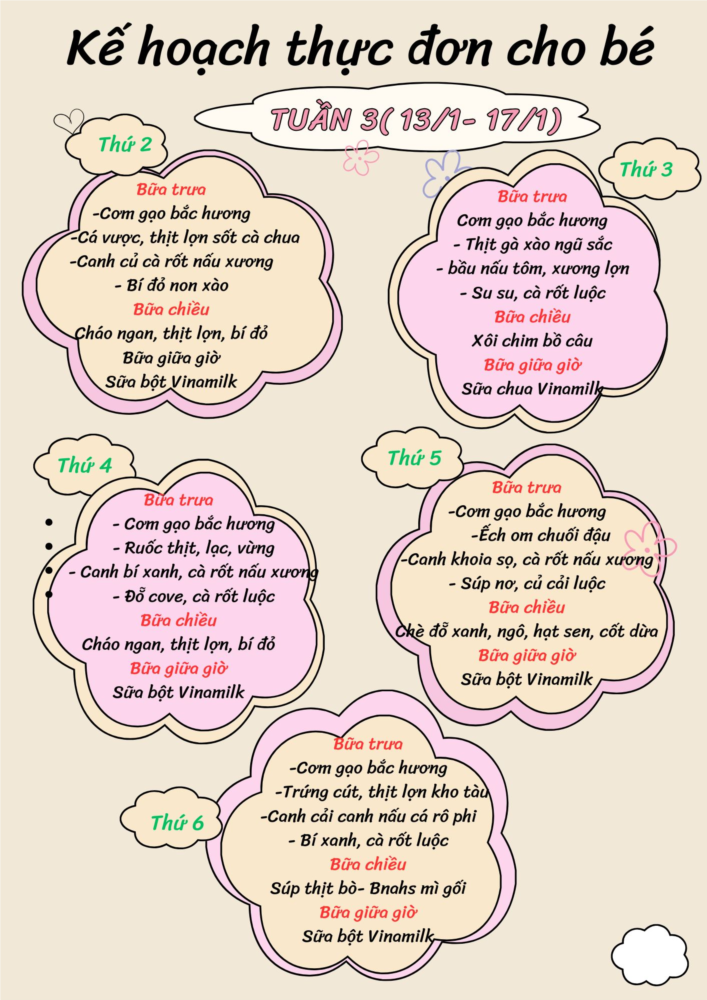 Kế hoạch thực đơn cho bé
TUẦN 3( 13/1- 17/1)
Thứ 2
Bữa trưa
-Cơm gạo bắc hương
-Cá vược, thịt lợn sốt cà chua
-Canh củ cà rốt nấu xương
- Bí đỏ non xào
Bữa chiều
Cháo ngan, thịt lợn, bí đỏ
Bữa giữa giờ
Sữa bột Vinamilk
Thứ 3
Bữa trưa
Cơm gạo bắc hương
- Thịt gà xào ngũ sắc
- bầu nấu tôm, xương lợn
- Su su, cà rốt luộc
Bữa chiều
Xôi chim bồ câu
Bữa giữa giờ
Sữa chua Vinamilk
Thứ 4
Bữa trưa
- Cơm gạo bắc hương
- Ruốc thịt, lạc, vừng
- Canh bí xanh, cà rốt nấu xương
- Đỗ cove, cà rốt luộc
Bữa chiều
Cháo ngan, thịt lợn, bí đỏ
Bữa giữa giờ
Sữa bột Vinamilk
Thứ 5
Bữa trưa
-Cơm gạo bắc hương
-Ếch om chuối đậu
-Canh khoia sọ, cà rốt nấu xương
- Súp nơ, củ cải luộc
Bữa chiều
Chè đỗ xanh, ngô, hạt sen, cốt dừa
Bữa giữa giờ
Sữa bột Vinamilk
Thứ 6
Bữa trưa
-Cơm gạo bắc hương
-Trứng cút, thịt lợn kho tàu
-Canh cải canh nấu cá rô phi
- Bí xanh, cà rốt luộc
Bữa chiều
Súp thịt bò- Bnahs mì gối
Bữa giữa giờ
Sữa bột Vinamilk